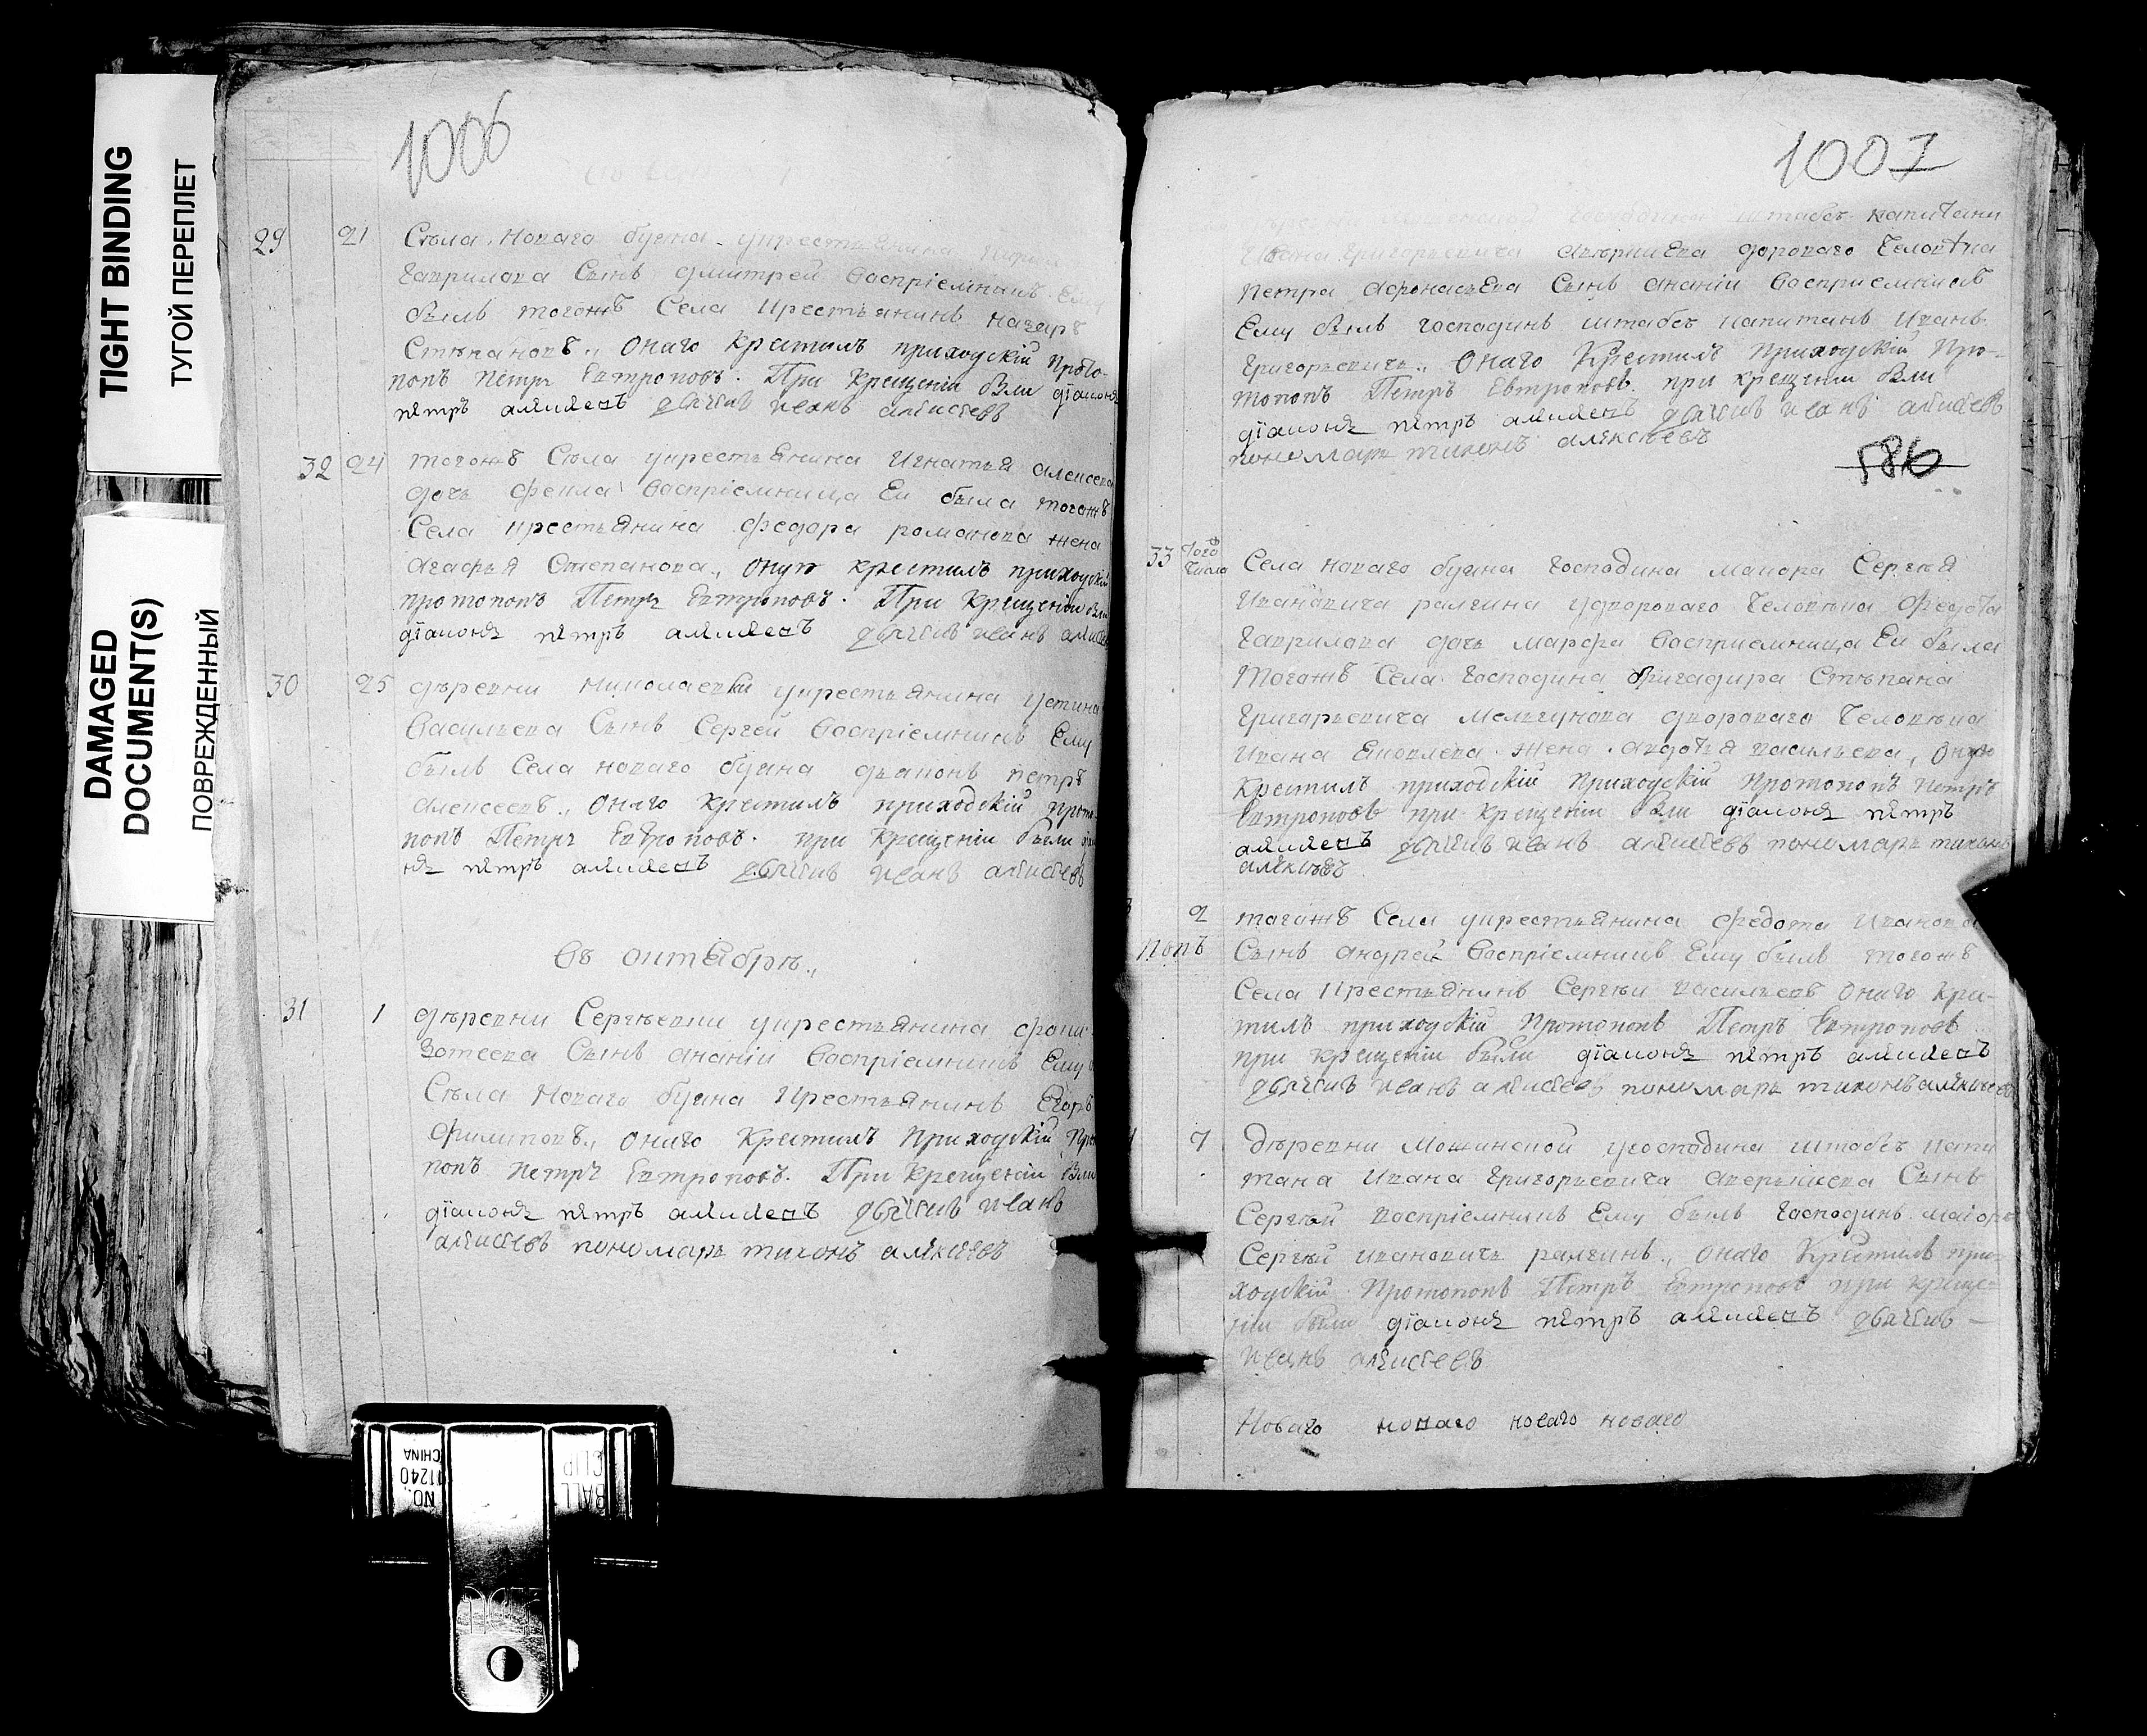 TIGHT BINDING
ТУГОЙ ПЕРЕПЛЕТ
DAMAGED
DOCUMENT(S)
ПОВРЕЖДЕННЫЙ
1006
29 21 Съла новаго буяна укрестьянина
гаврилова Сынъ дмитрей восприемникъ Ему
былъ тогожъ Села крестьянинъ назаръ
Стѣпановъ., Онаго крестилъ приходскій прото-
попъ Петръ Евтроповъ. При крещеніи были діаконъ
петръ алексеевъ дьячекъ иванъ алексеевъ
32 24 тогожъ Съла укрестьянина Игнатья алексеева
дочь фекла восприемница Ея была тогожъ
Села крестьянина федора романова жена
Агафья Степанова., Оную крестилъ приходскій
протопопъ Петръ Евтроповъ. При Крещеніи были
діаконъ петръ алексеевъ дьячекъ иванъ алексеевъ
30 25 дѣревни николаевки укрестьянина устина
васильева Сынъ Сергей восприемникъ Ему
былъ Села новаго буяна дьяконъ петръ
алексеевъ., Онаго крестилъ приходскій прото-
попъ Петръ Евтроповъ. при крещеніи были діако-
нъ петръ алексеевъ дьячекъ иванъ алексеевъ
въ октябрѣ.,
31 1 дѣревни Сергѣевки укрестьянина
Зотеева Сынъ ананіи восприемникъ Ему
Съла новаго буяна крестьянинъ Егоръ
филиповъ., Онаго крестилъ приходскій прото-
попъ петръ Евтроповъ. При крещеніи были
діаконъ петръ алексеевъ дьячекъ иванъ
алексеевъ пономарь тихонъ алексеевъ
1007
господина штабсъ капитана
Ивана григорьевича аверкиева дороваго человѣка
петра афонасьева Сынъ ананіи восприемникъ
Ему былъ господинъ штабсъ капитанъ Иванъ
григорьевичь., Онаго Крестилъ приходскій про-
топопъ Петръ Евтроповъ. при крещеніи были
діаконъ петръ алексеевъ дьячекъ иванъ алексеевъ
пономарь тихонъ алексеевъ
586
33 Того числа Села новаго буяна господина маиора Сергѣя
Ивановича ралгина удвороваго человѣка федота
гаврилова дочь марфа восприемница Ея была
тогожъ Села господина бригадира Стѣпана
григорьевича мельгунова двороваго человѣка
Ивана Яковлева жена авдотья васильева, Оную
крестилъ приходскій Приходскій Протопопъ петръ
Евтроповъ при крещеніи были діаконъ петръ
алексеевъ дьячекъ иванъ алексеевъ пономарь тихонъ
алексѣевъ
2 тогожъ Села укрестьянина федота Иванова
попъ Сынъ андрей восприемникъ Ему былъ тогожъ
Села крестьянинъ Сергѣи васильевъ Онаго кри-
тилъ приходскій Протопопъ Петръ Евтроповъ
при крещеніи были діаконъ петръ алексеевъ
дьячекъ иванъ алексеевъ пономарь тихонъ алексеевъ
7 дѣревни Мошинской угосподина штабсъ капи
тана Ивана григорьевича аверькиева Сынъ
Сергѣй восприемникъ Ему былъ господинъ маиоръ
Сергѣй ивановичь ралгинъ., Онаго крестилъ при-
ходскій Протопопъ Петръ Евтроповъ при креще-
ніи были діаконъ петръ алексеевъ дьячекъ —
иванъ алексеевъ
Новаго новаго новаго новаго
NO. 11240
CHINA
BALL
CLIP